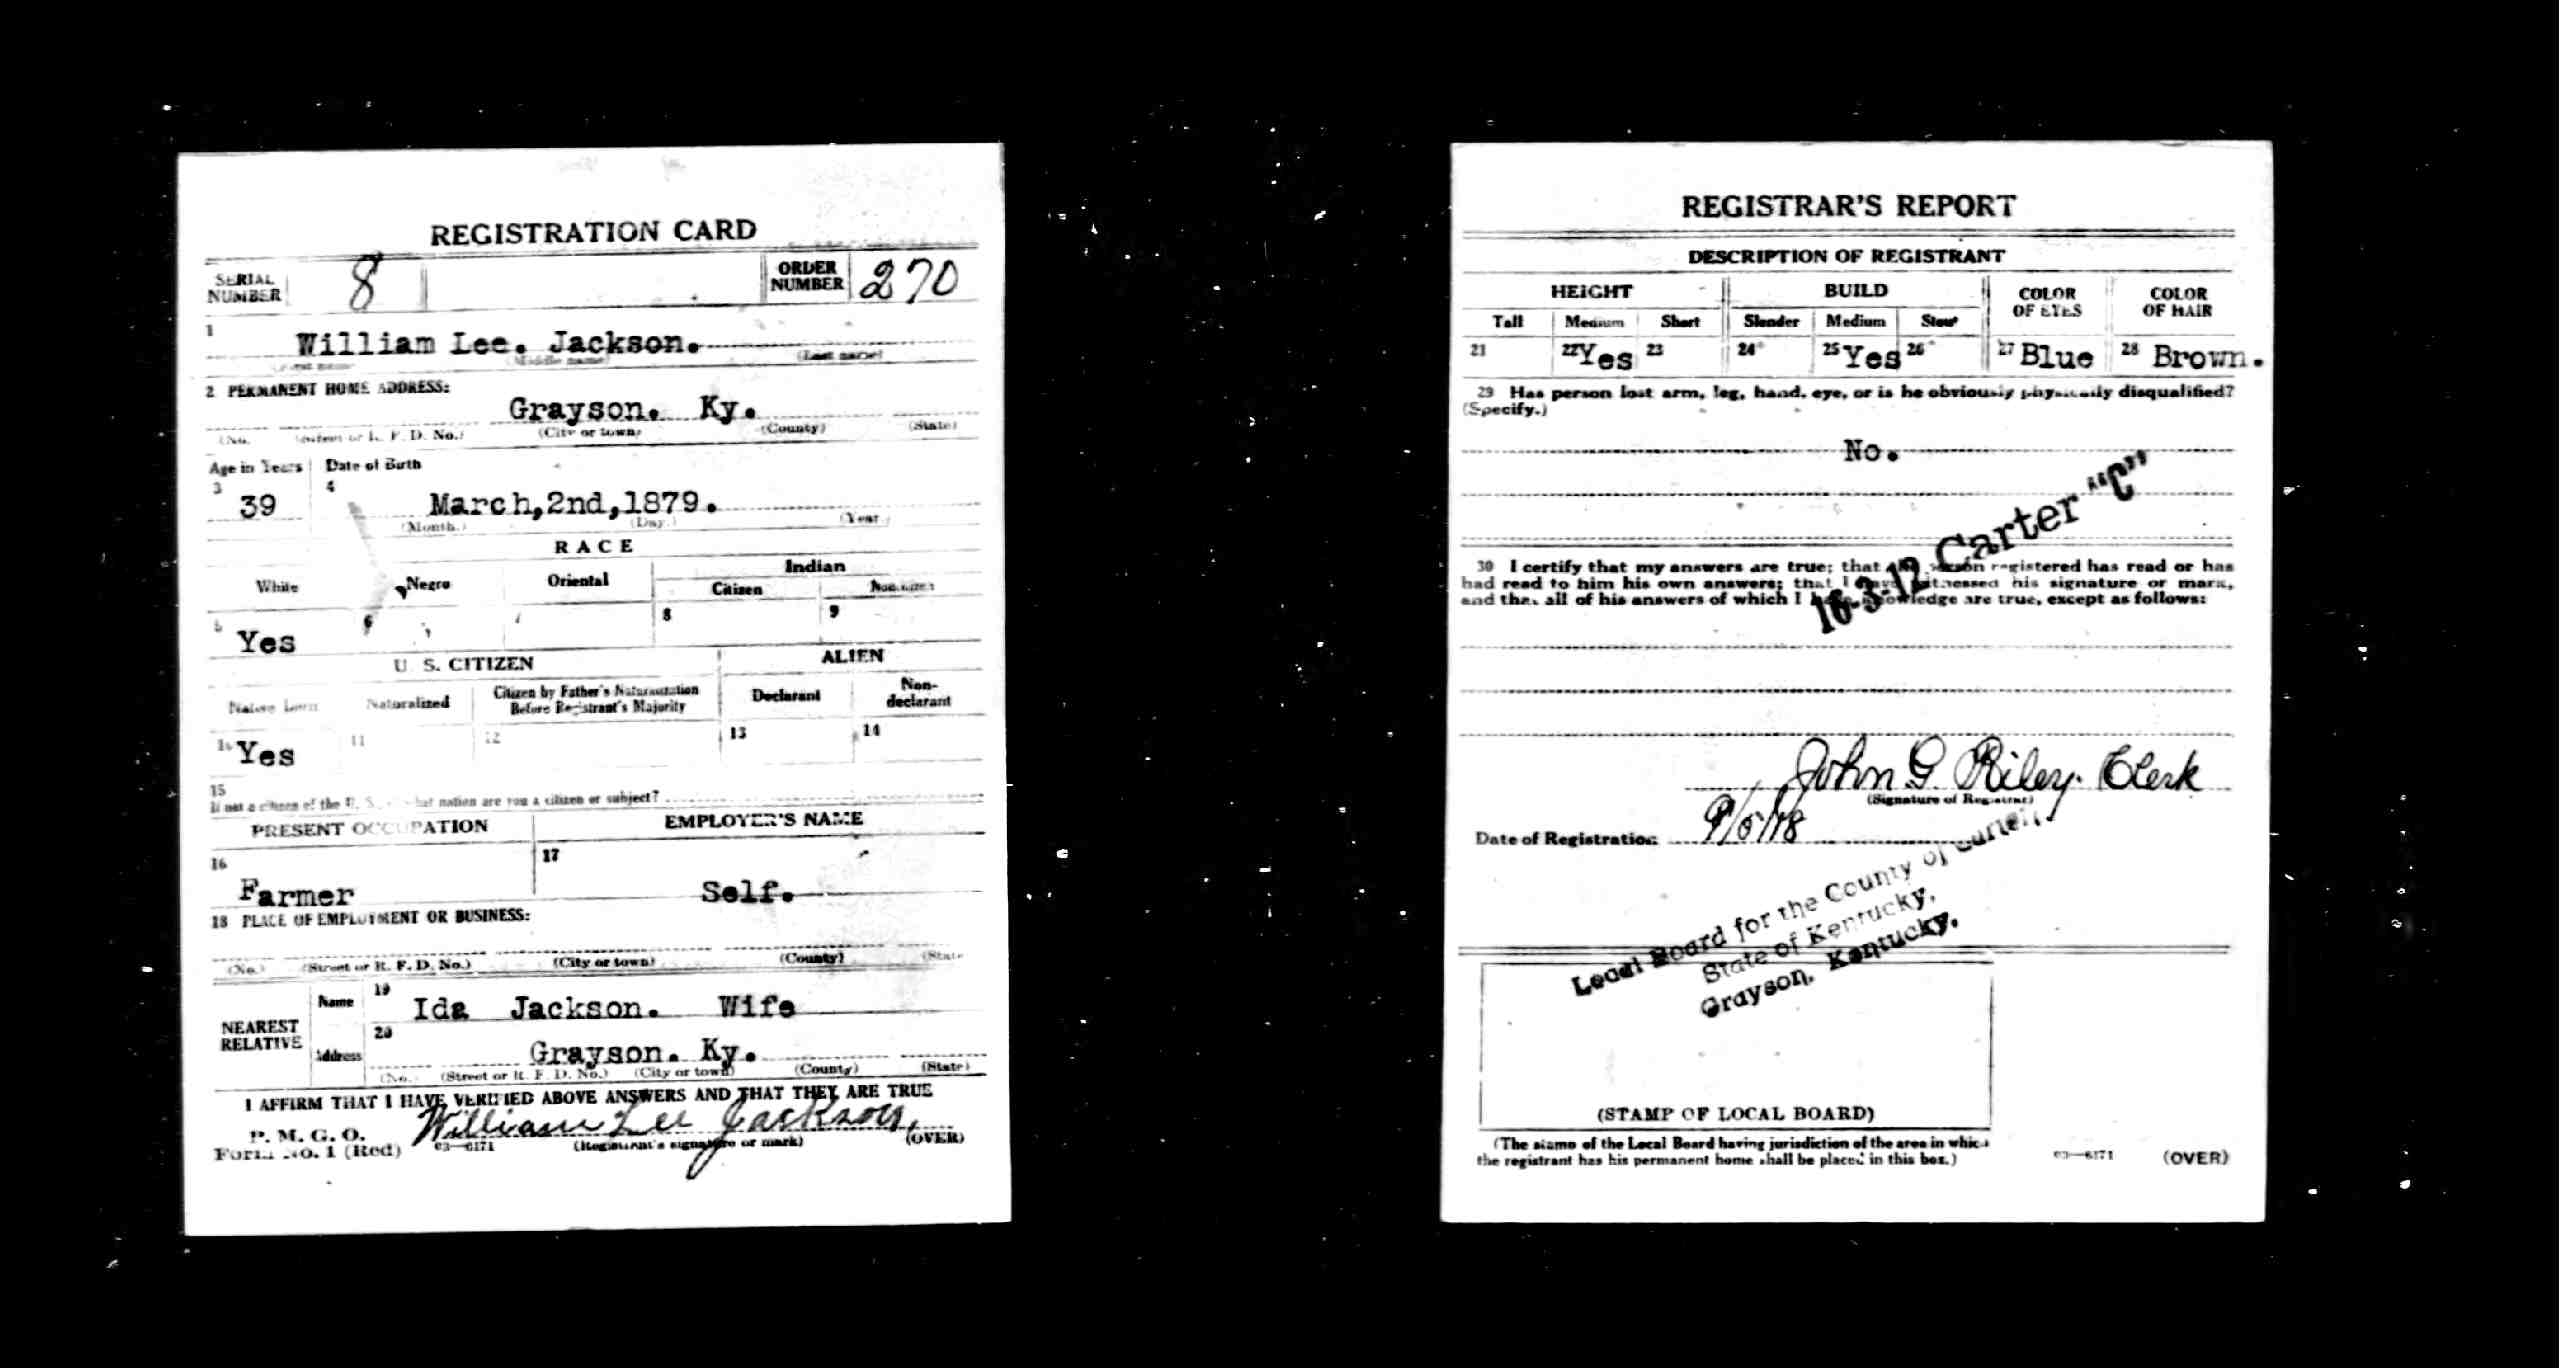 REGISTRATION CARD
SERIAL NUMBER 8 ORDER NUMBER 270
1 William Lee. Jackson.
(Middle name) (Last name)
2 PERMANENT HOME ADDRESS:
Grayson. Ky.
(No. (Street or R. F. D. No.) (City or town) (County) (State)
Age in Years Date of Birth
3 39 4 March,2nd,1879.
(Month.) (Day.) (Year.)
RACE
White Negro Oriental Indian
Citizen Noncitizen
5 Yes 6 7 8 9
U. S. CITIZEN ALIEN
Native born Naturalized Citizen by Father's Naturalization Before Registrant's Majority Declarant Non-declarant
10 Yes 11 12 13 14
15
If not a citizen of the U. S., of what nation are you a citizen or subject?
PRESENT OCCUPATION EMPLOYER'S NAME
16 Farmer 17 Self.
18 PLACE OF EMPLOYMENT OR BUSINESS:
(No.) (Street or R. F. D. No.) (City or town) (County) (State
NEAREST RELATIVE Name 19 Ida Jackson. Wife
Address 20 Grayson. Ky.
(No.) (Street or R. F. D. No.) (City or town) (County) (State)
I AFFIRM THAT I HAVE VERIFIED ABOVE ANSWERS AND THAT THEY ARE TRUE
P. M. G. O.
Form No. 1 (Red) 03—6171 William Lee Jackson,
(Registrant's signature or mark) (OVER)
REGISTRAR'S REPORT
DESCRIPTION OF REGISTRANT
HEIGHT BUILD COLOR OF EYES COLOR OF HAIR
Tall Medium Short Slender Medium Stout
21 22 Yes 23 24 25 Yes 26 27 Blue 28 Brown.
29 Has person lost arm, leg, hand, eye, or is he obviously physically disqualified?
(Specify.)
No.
16-3-12 Carter "C"
30 I certify that my answers are true; that the person registered has read or has
had read to him his own answers; that I have witnessed his signature or mark,
and that all of his answers of which I have knowledge are true, except as follows:
John G. Riley Clerk
(Signature of Registrar)
Date of Registration 9/5/18
Local Board for the County of Carter,
State of Kentucky,
Grayson, Kentucky.
(STAMP OF LOCAL BOARD)
(The stamp of the Local Board having jurisdiction of the area in which
the registrant has his permanent home shall be placed in this box.)
03—6171 (OVER)